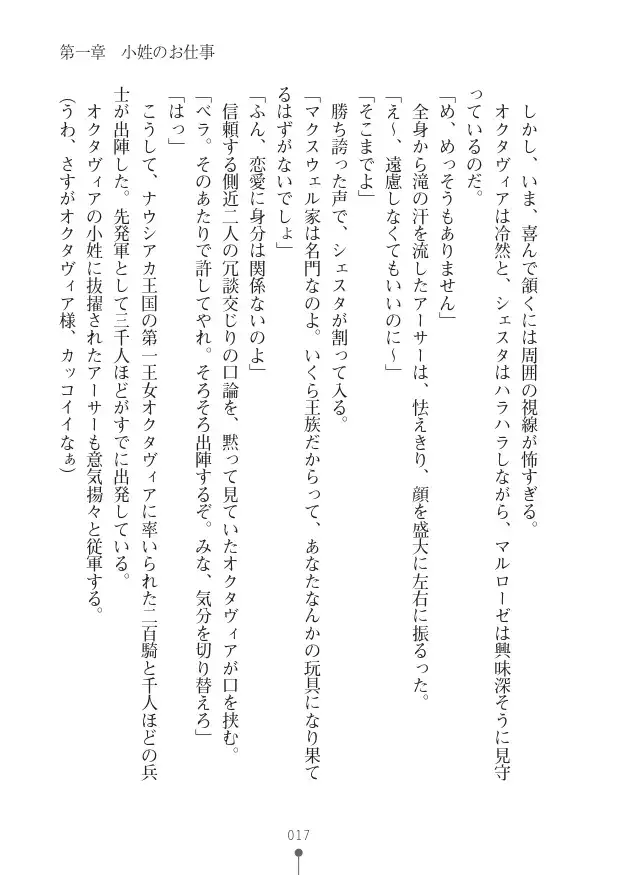 第一章　小姓のお仕事
しかし、いま、喜んで頷くには周囲の視線が怖すぎる。
オクタヴィアは冷然と、シェスタはハラハラしながら、マルローゼは興味深そうに見守
っているのだ。
「め、めっそうもありません」
全身から滝の汗を流したアーサーは、怯えきり、顔を盛大に左右に振るった。
「え～、遠慮しなくてもいいのに～」
「そこまでよ」
勝ち誇った声で、シェスタが割って入る。
「マクスウェル家は名門なのよ。いくら王族だからって、あなたなんかの玩具になり果て
るはずがないでしょ」
「ふん、恋愛に身分は関係ないのよ」
信頼する側近二人の冗談交じりの口論を、黙って見ていたオクタヴィアが口を挟む。
「ベラ。そのあたりで許してやれ。そろそろ出陣するぞ。みな、気分を切り替えろ」
「はっ」
こうして、ナウシアカ王国の第一王女オクタヴィアに率いられた二百騎と千人ほどの兵
士が出陣した。先発軍として三千人ほどがすでに出発している。
オクタヴィアの小姓に抜擢されたアーサーも意気揚々と従軍する。
(うわ、さすがオクタヴィア様、カッコイイなぁ)
017